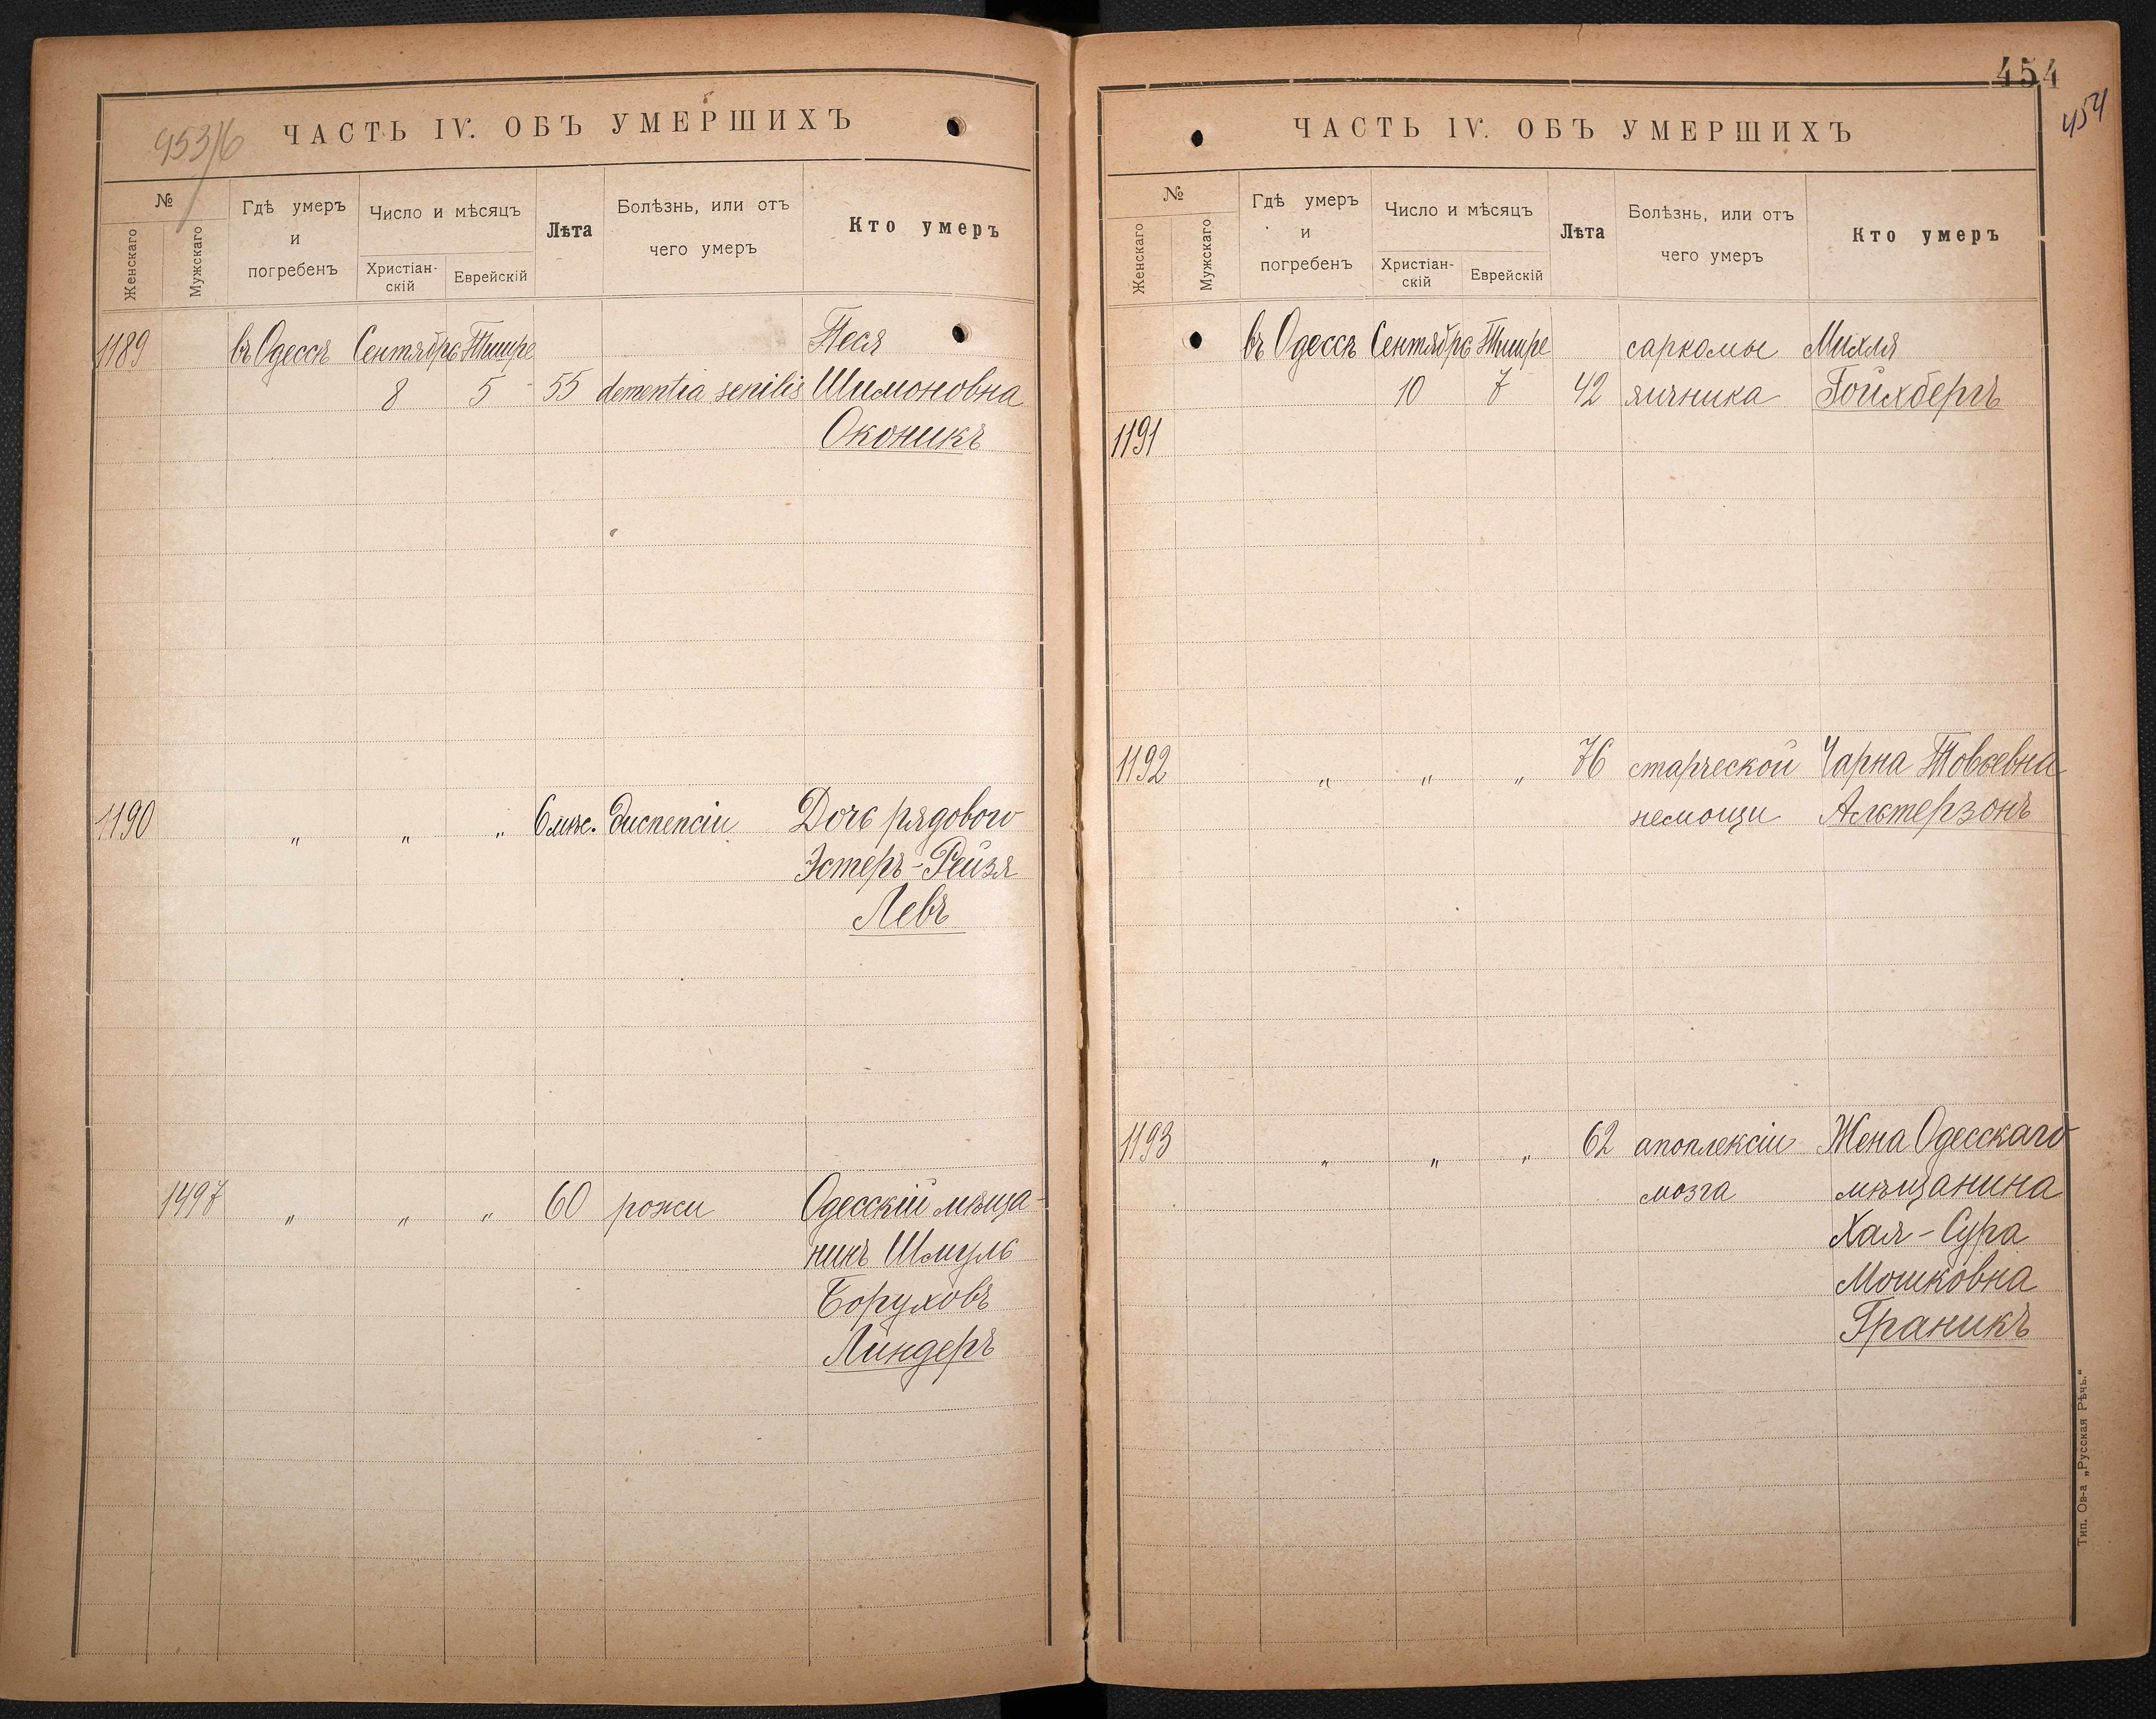 953/6
ЧАСТЬ IV. ОБЪ УМЕРШИХЪ
№
Женскаго
Мужскаго
Гдѣ умеръ
и
погребенъ
Число и мѣсяцъ
Христіан-
скій
Еврейскій
Лѣта
Болѣзнь, или отъ
чего умеръ
Кто умеръ
1189 въ Одессѣ Сентябрь Тишре Песя
8 5 55 dementia senilis Шимоновна
Оконикъ
1190 " " " 6 мѣс. диспепсіи Дочь рядового
Эстеръ-Рейзя
Левъ
1497 " " " 60 рожи Одесскій мѣща-
нинъ Шмуль
Боруховъ
Линдеръ
454
454
ЧАСТЬ IV. ОБЪ УМЕРШИХЪ
№
Женскаго
Мужскаго
Гдѣ умеръ
и
погребенъ
Число и мѣсяцъ
Христіан-
скій
Еврейскій
Лѣта
Болѣзнь, или отъ
чего умеръ
Кто умеръ
въ Одессѣ Сентябрь Тишре саркомы Михля
10 7 42 яичника Гойхбергъ
1191
1192 " " " 76 старческой Чарна Товьевна
немощи Альтерзонъ
1193 " " " 62 апоплексіи Жена Одесскаго
мозга мѣщанина
Хая-Сура
Мошковна
Граникъ
Тип. Ов-а „Русская Рѣчь."